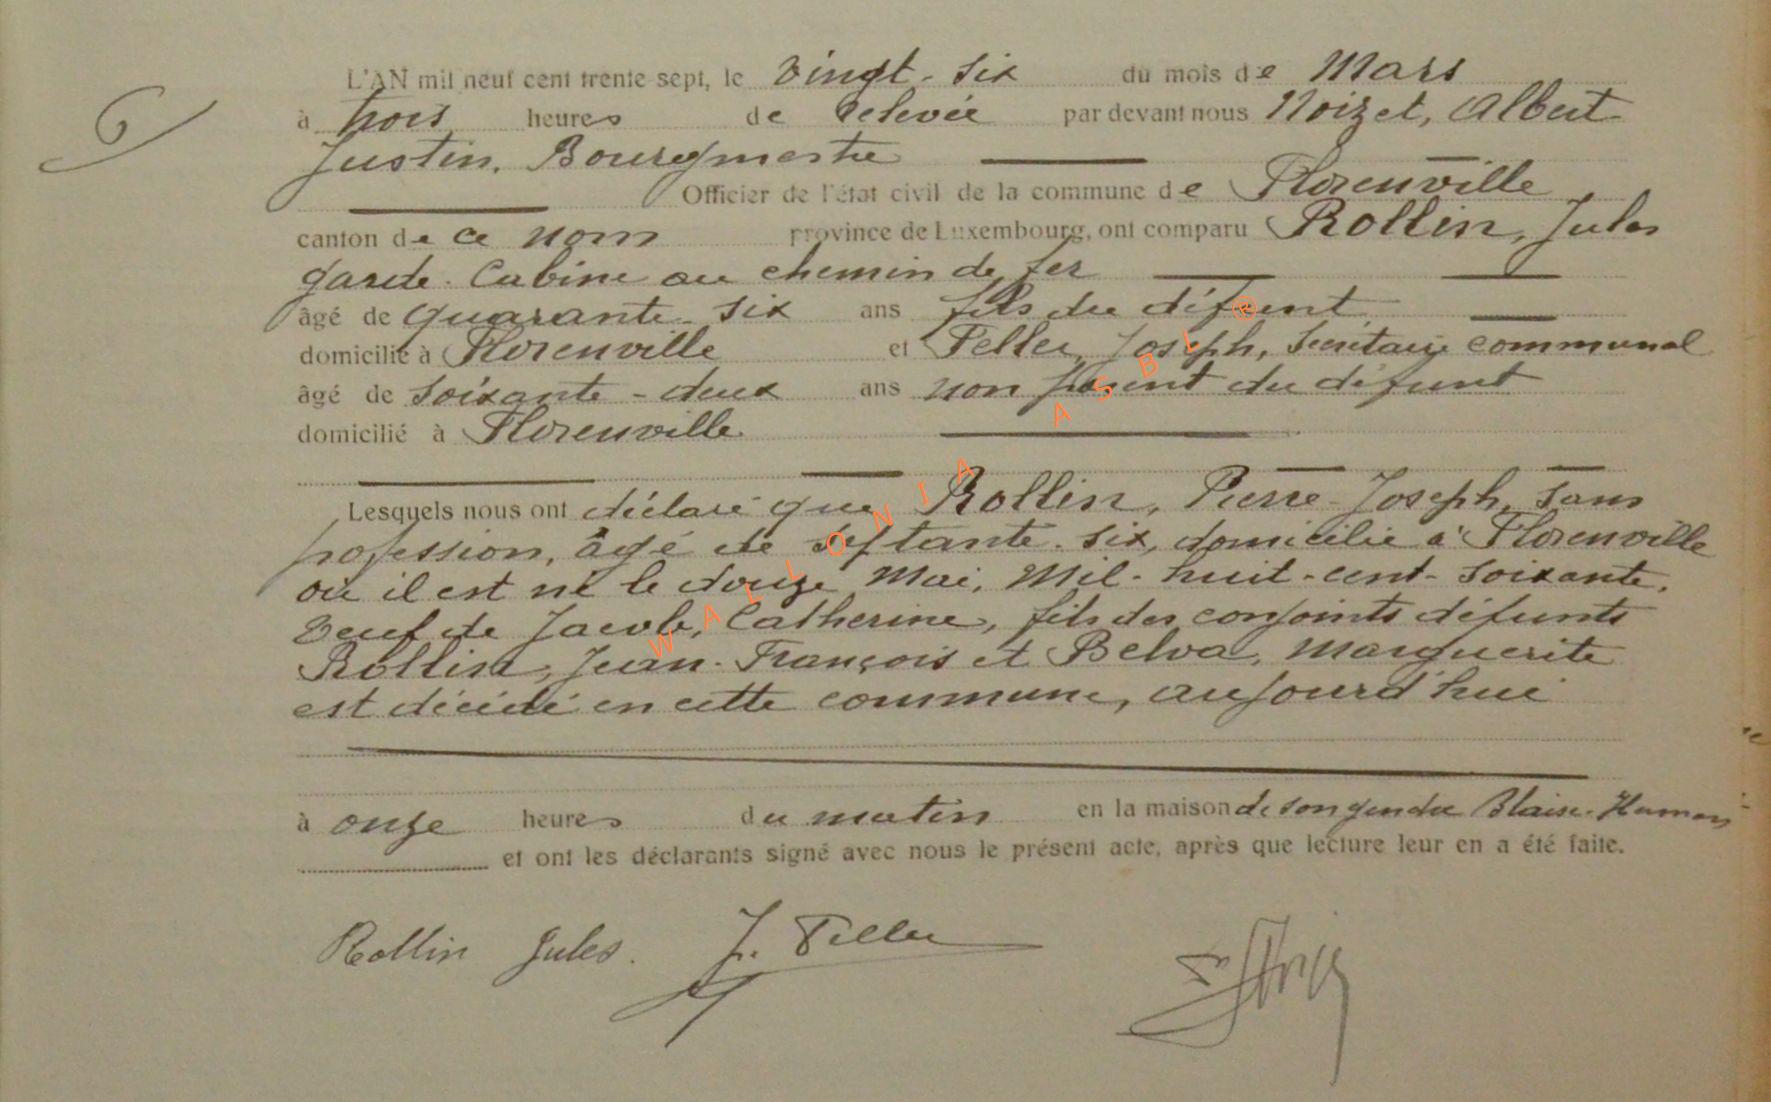 6
L'AN mil neuf cent trente-sept, le vingt-six du mois de Mars
à trois heures de relevée par devant nous Noizet, Albert
Justin, Bourgmestre
Officier de l'état civil de la commune de Florenville
canton de ce nom province de Luxembourg, ont comparu Rollin, Jules
garde-Cabine au chemin de fer
âgé de quarante-six ans fils du défunt
domicilié à Florenville et Peller, Joseph, Secrétaire communal
âgé de soixante-deux ans non parent du défunt
domicilié à Florenville
Lesquels nous ont déclaré que Rollin, Pierre-Joseph, sans
profession, âgé de septante-six, domicilié à Florenville
où il est né le douze Mai, Mil-huit-cent-soixante,
Veuf de Jacob, Catherine, fils des conjoints défunts
Rollin, Jean-François et Belva, Marguerite
est décédé en cette commune, aujourd'hui
à onze heures du matin en la maison de son gendre Blaise-
et ont les déclarants signé avec nous le présent acte, après que lecture leur en a été faite.
Rollin Jules. J. Peller
WALLONIA ASBL ®